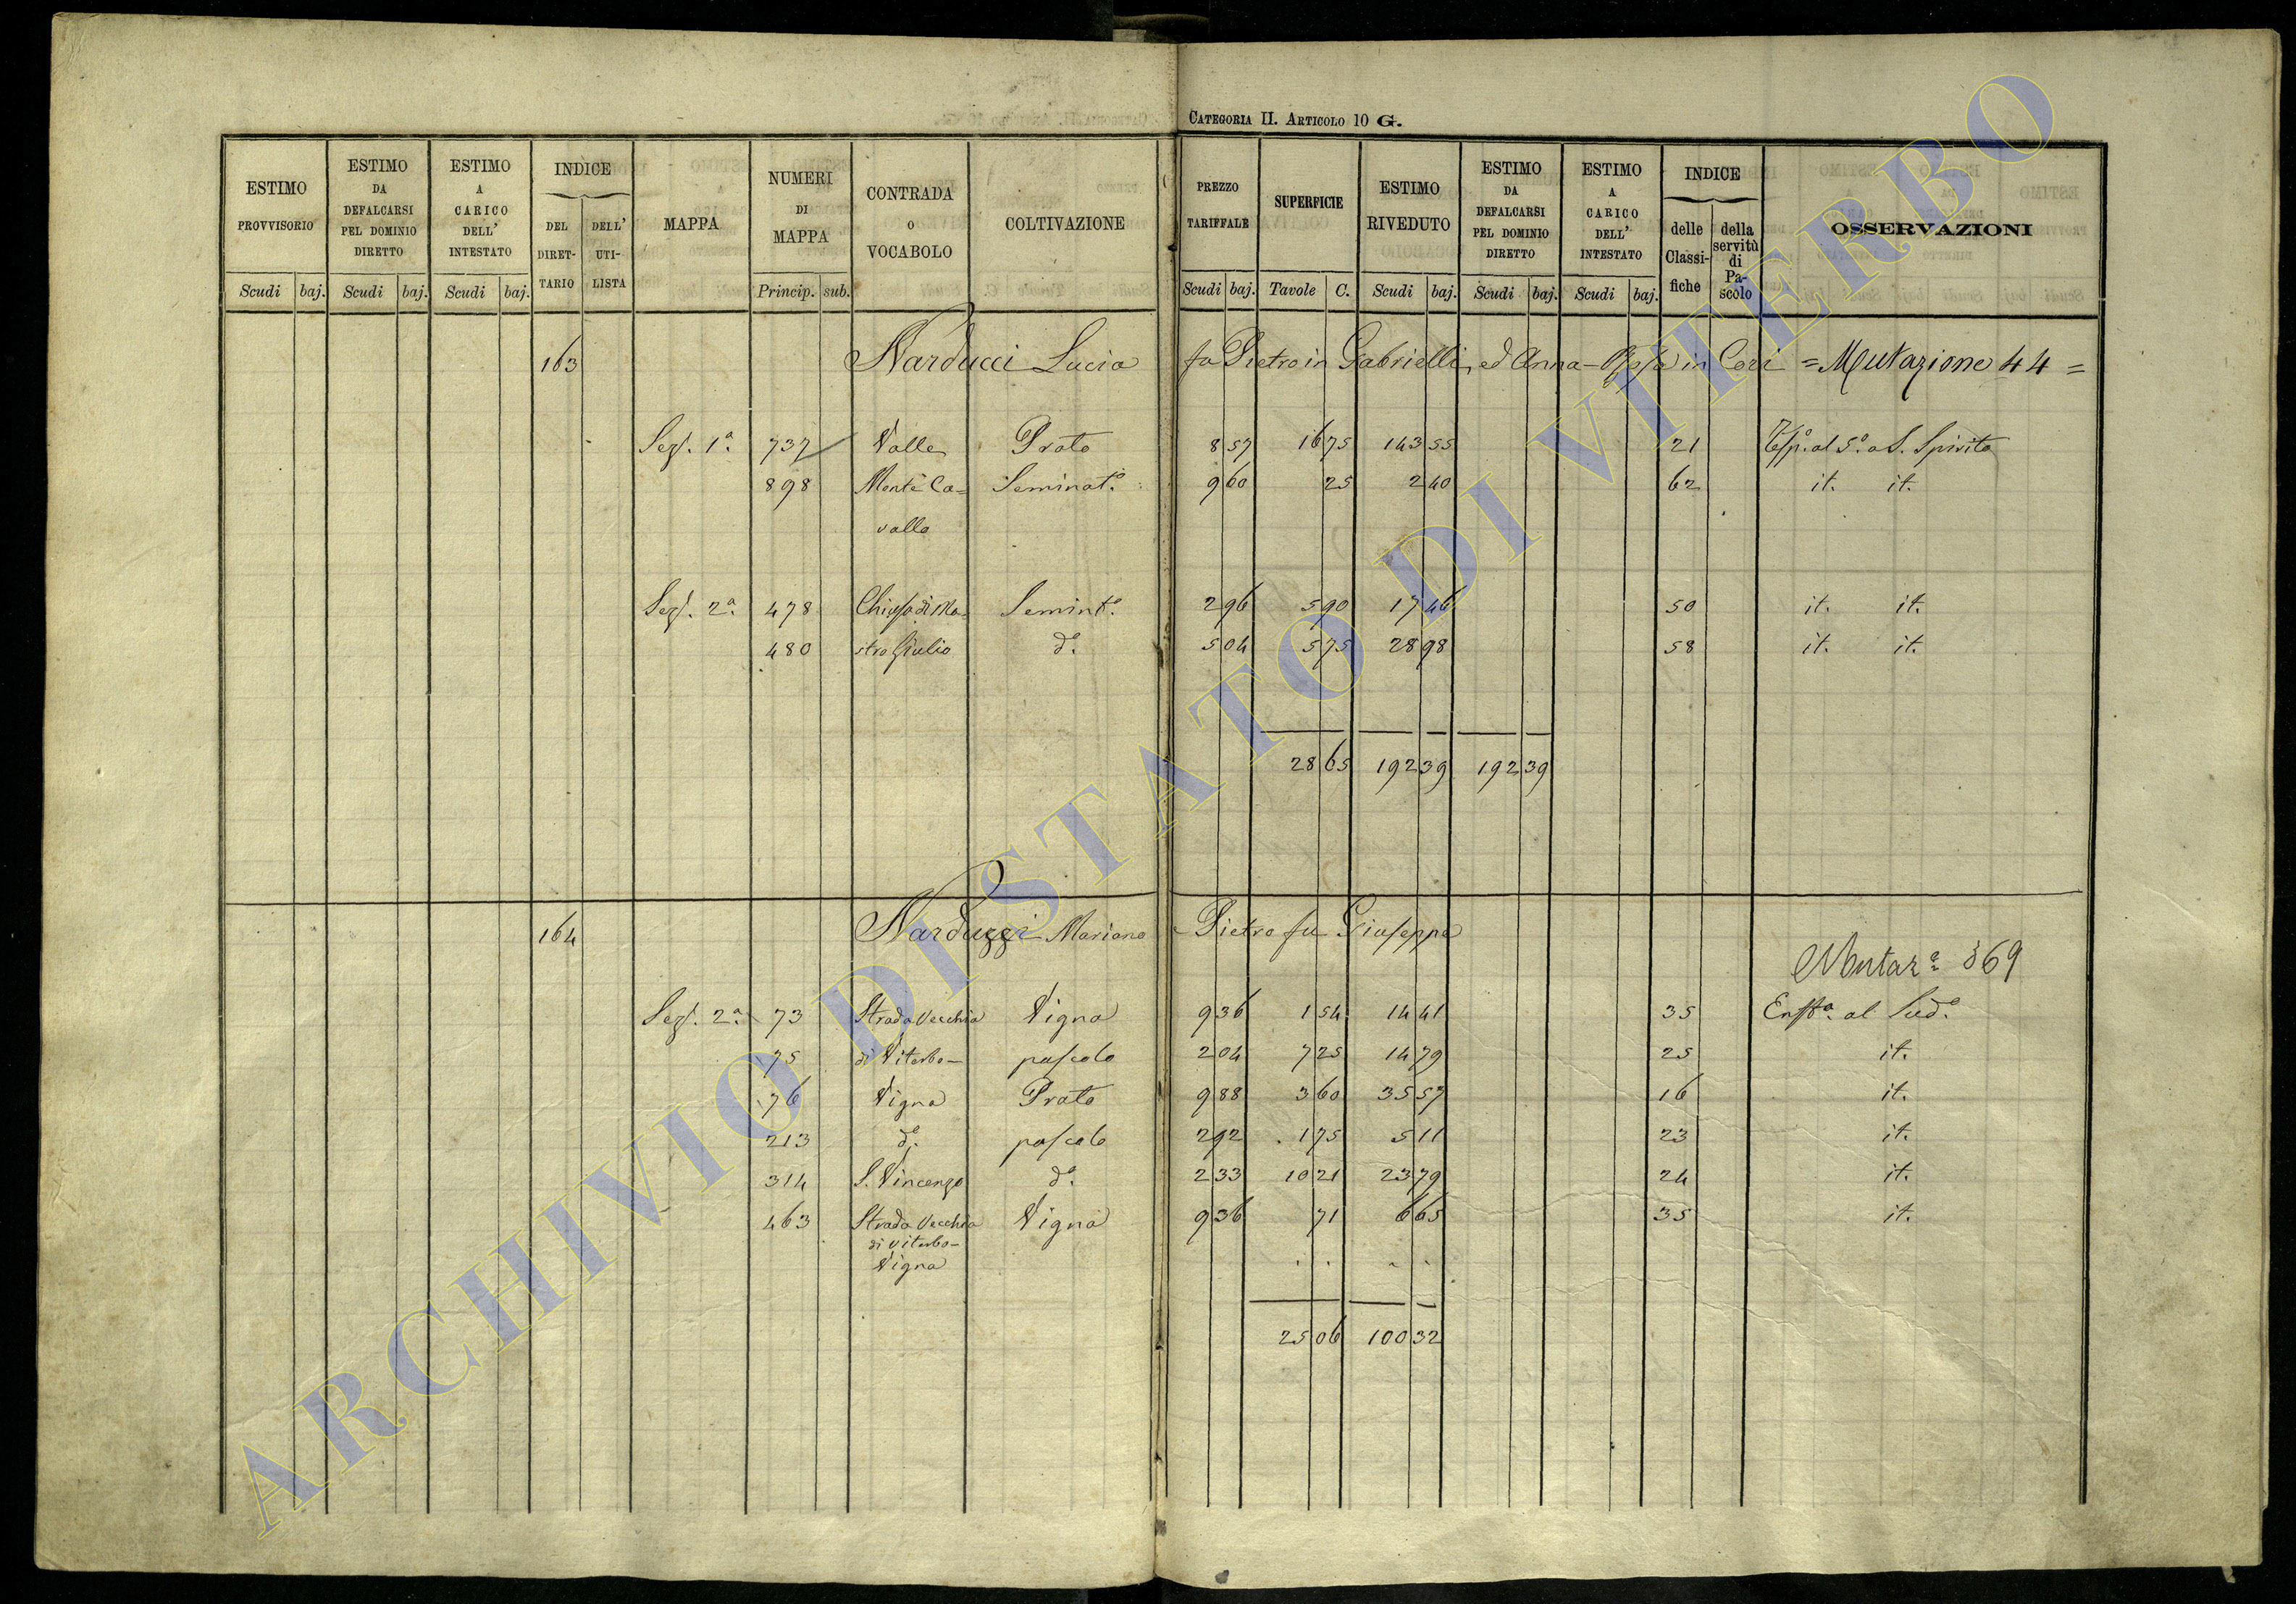 CATEGORIA II. ARTICOLO 10 G.
ESTIMO PROVVISORIO Scudi baj.
ESTIMO DA DEFALCARSI PEL DOMINIO DIRETTO Scudi baj.
ESTIMO A CARICO DELL' INTESTATO Scudi baj.
INDICE DEL DIRET-TARIO DELL' UTI-LISTA
MAPPA
NUMERI DI MAPPA Princip. sub.
CONTRADA O VOCABOLO
COLTIVAZIONE
PREZZO TARIFFALE Scudi baj.
SUPERFICIE Tavole C.
ESTIMO RIVEDUTO Scudi baj.
ESTIMO DA DEFALCARSI PEL DOMINIO DIRETTO Scudi baj.
ESTIMO A CARICO DELL' INTESTATO Scudi baj.
INDICE delle Classi-fiche della servitù di Pa-scolo
OSSERVAZIONI
163 Narducci Lucia fu Pietro in Gabrielli, ed Anna in Ceri = Mutazione 44 =
Sez. 1a. 737 Valle Prato 8 57 16 75 143 55 21 al 5o. a S. Spirito
898 Monte Ca- Seminato. 9 60 25 2 40 62 it. it.
vallo
Sez. 2a. 478 Chiusa di Ma- Semint.o 2 96 5 90 17 46 50 it. it.
480 stro Giulio do. 5 04 5 75 28 98 58 it. it.
28 65 192 39 192 39
164 Narduzzi Mariano Pietro fu Giuseppe
Mutaz.e 369
Sez. 2a. 73 Strada Vecchia Vigna 9 36 1 54 14 41 35 Enfta. al Sud.o
75 di Viterbo- pascolo 2 04 7 25 14 79 25 it.
76 Vigna Prato 9 88 3 60 35 57 16 it.
213 do. pascolo 2 92 1 75 5 11 23 it.
314 S. Vincenzo do. 2 33 10 21 23 79 24 it.
463 Strada Vecchia Vigna 9 36 71 6 65 35 it.
di Viterbo-
Vigna
25 06 100 32
ARCHIVIO DI STATO DI VITERBO